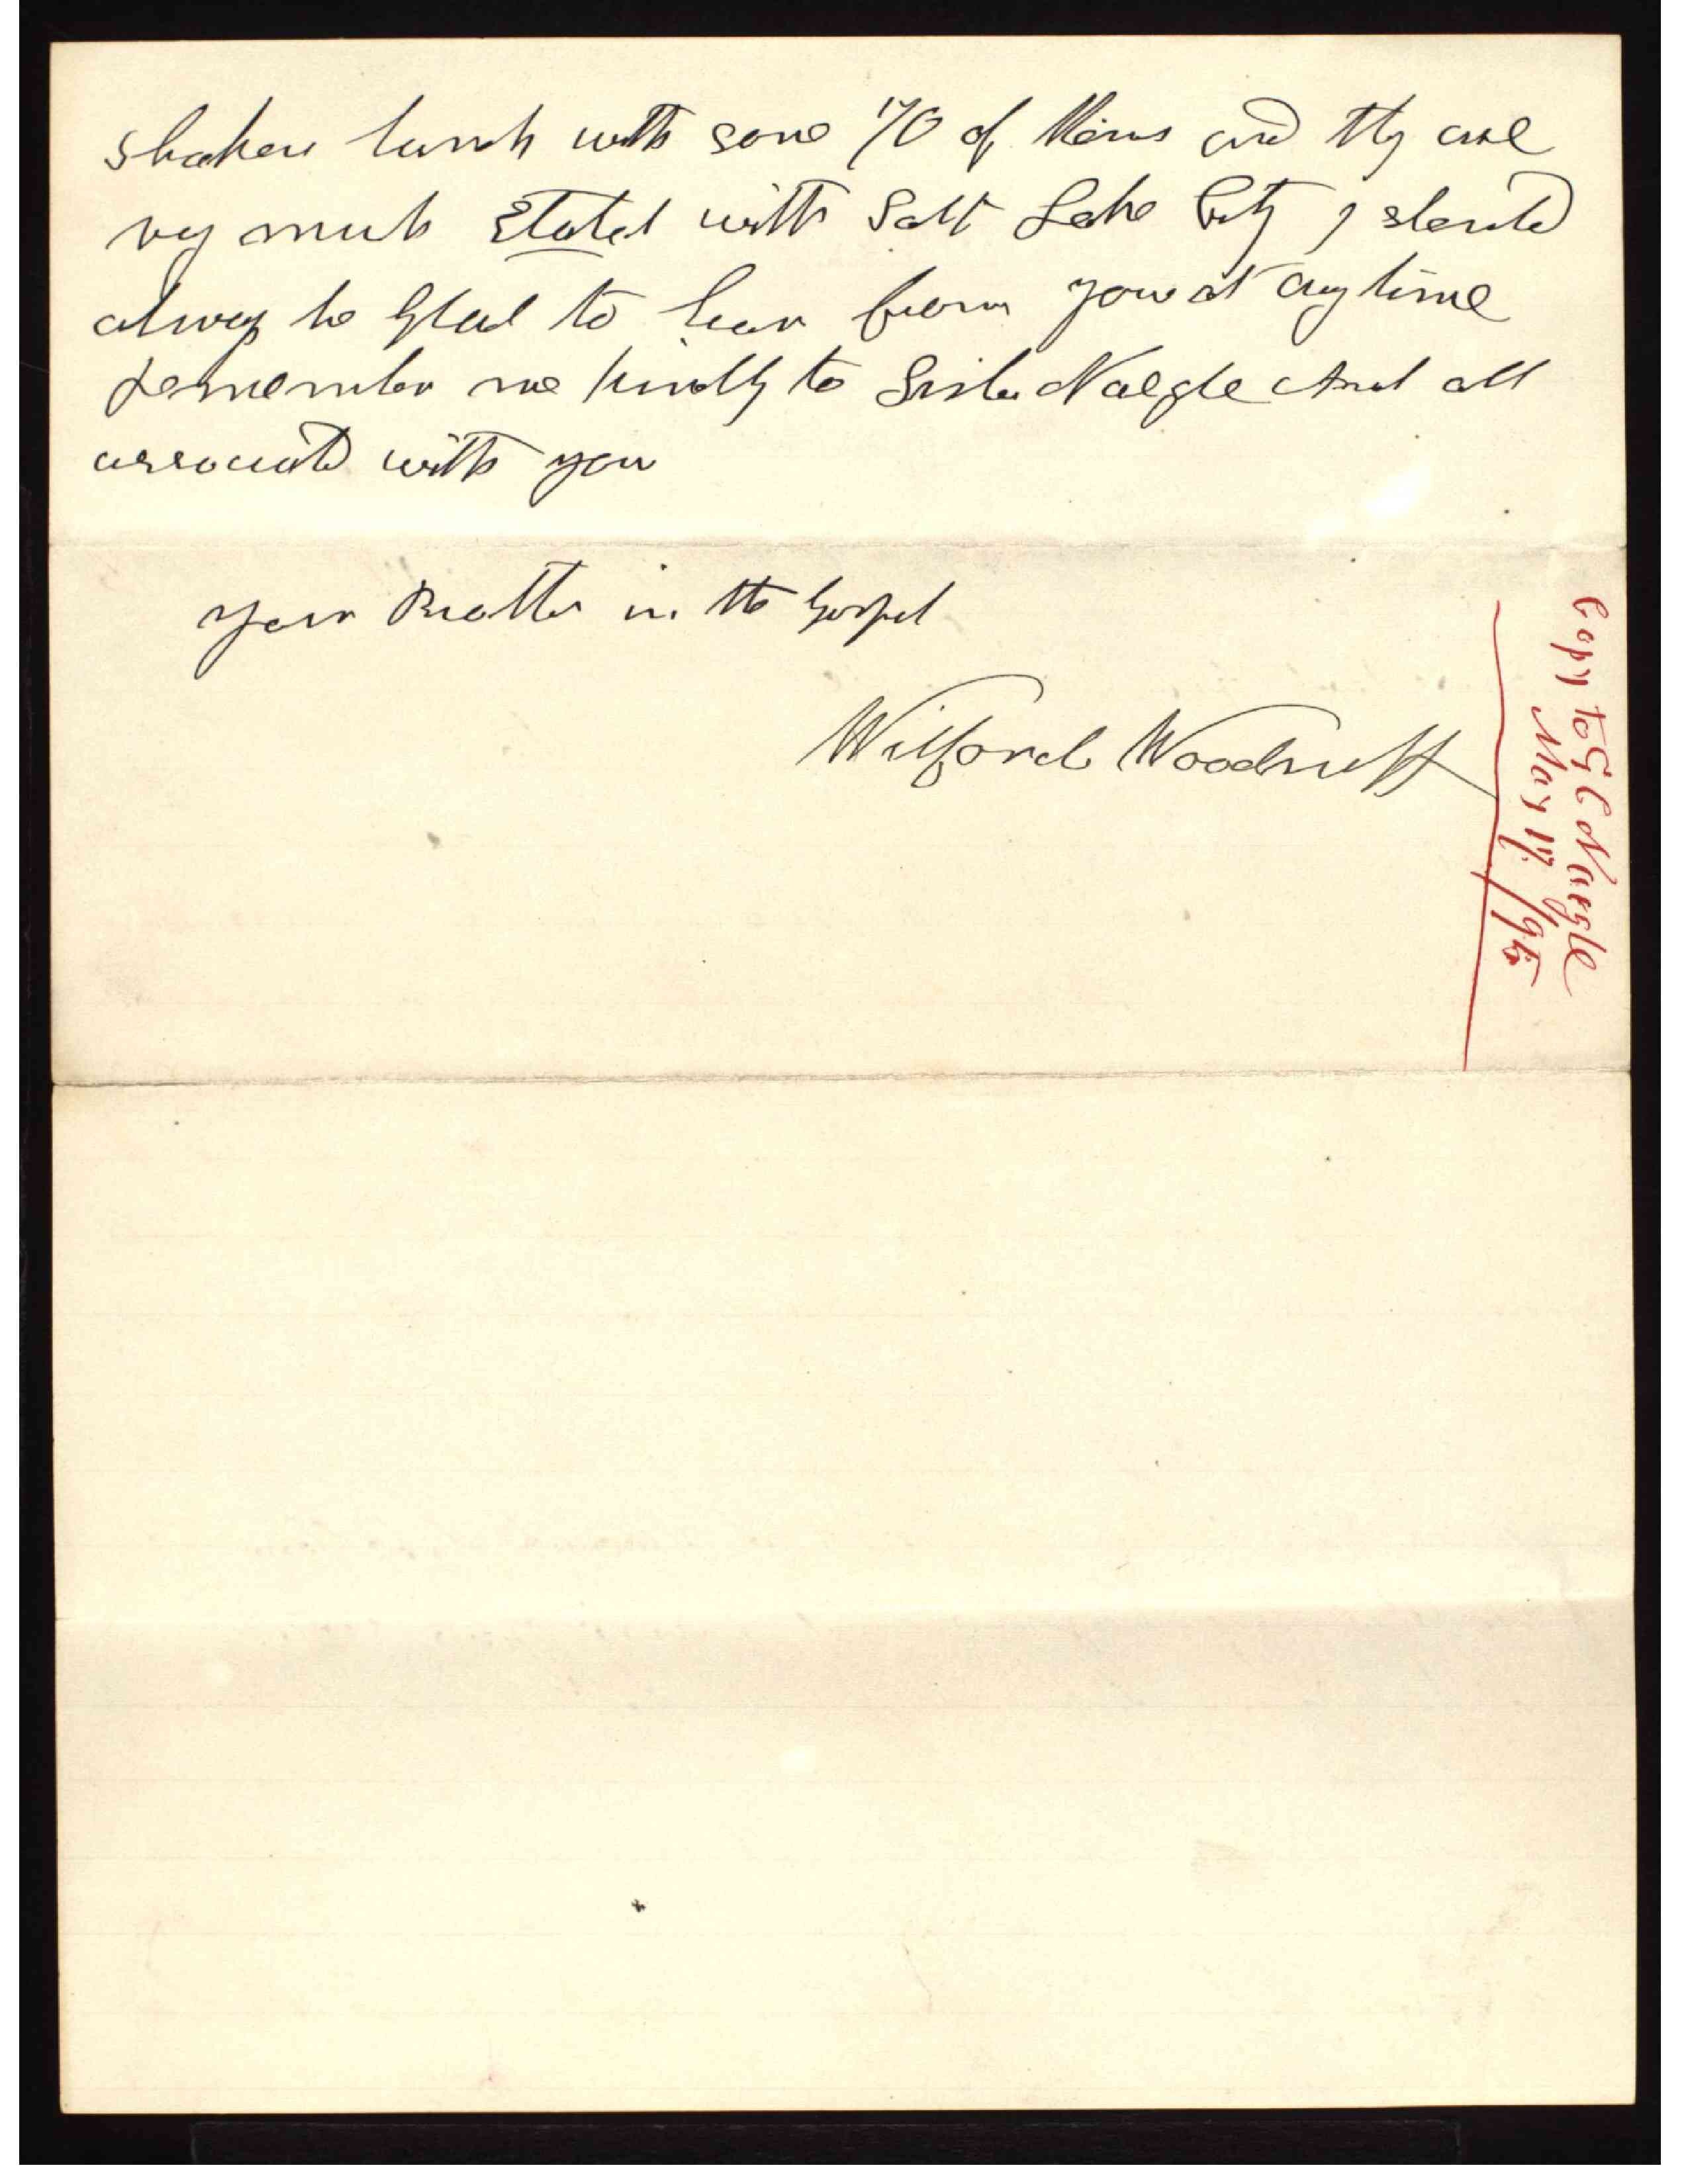 shaken hands with some 70 of them and they are
very much Elated with Salt Lake City I should
always be Glad to hear from you at any time
Remember me kindly to Sister Naegle And all
associated with you
Your Brother in the Gospel
Wilford Woodruff
Copy to G C Naegle
May 17/95